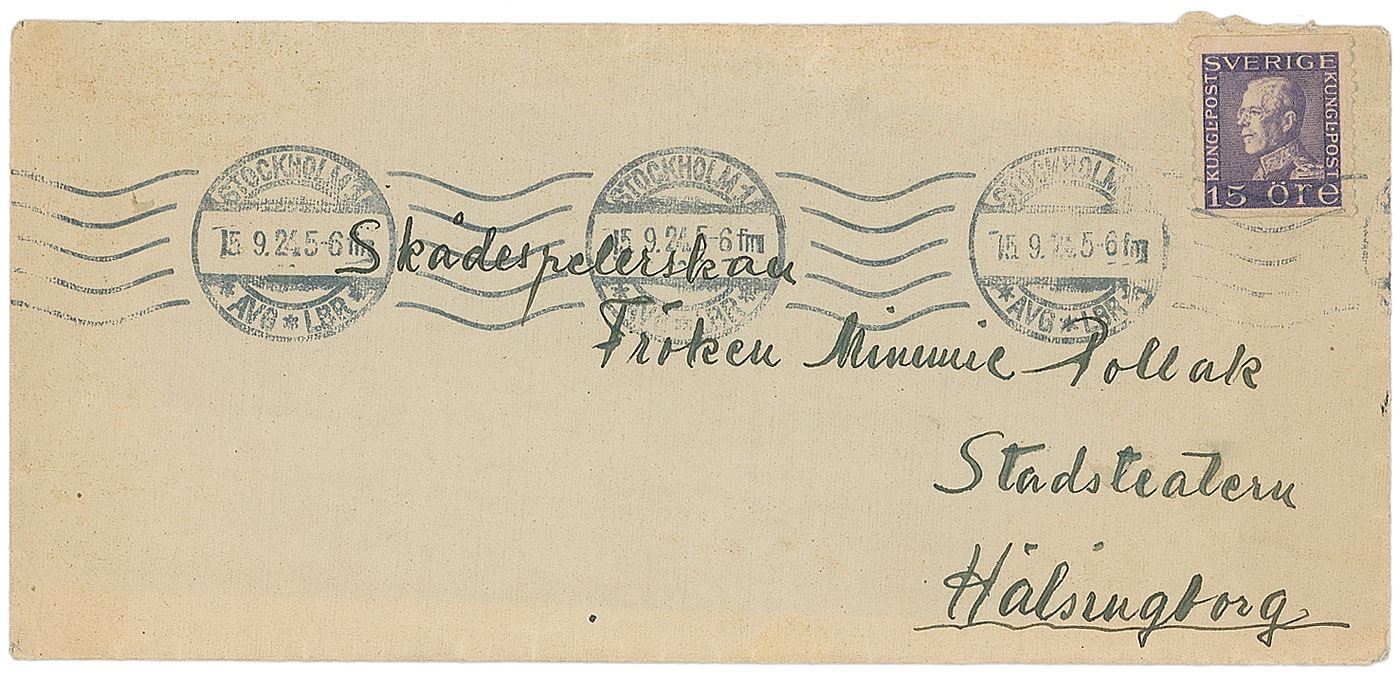 SVERIGE
KUNGL·POST
KUNGL·POST
15 ÖRE
STOCKHOLM 1
15.9.24.5-6 fm
* AVG * LBR *
STOCKHOLM 1
15.9.24.5-6 fm
STOCKHOLM
15.9.24.5-6 fm
* AVG * LBR
Skådespelerskan
Fröken Mimmie Pollak
Stadsteatern
Hälsingborg